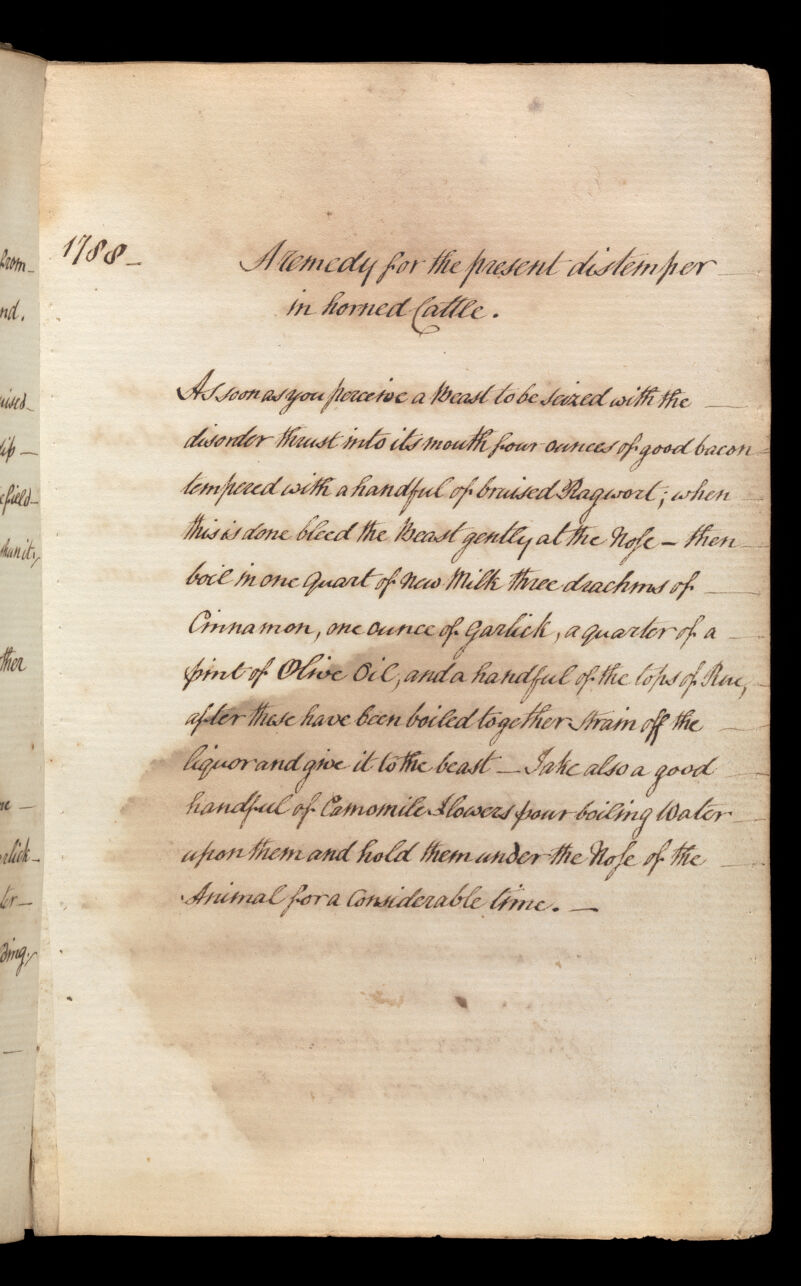 1788 –
A remedy for the present distemper
in horned Cattle.
As soon as you perceive a Beast to be seized with the
disorder thrust into its mouth four ounces of good bacon
tempered with a handful of bruised Ragwort; when
this is done bleed the Beast gently at the Nose – then
boil in one Quart of New Milk three drachms of
Cinnamon, one ounce of Garlick, a quarter of a
pint of Olive Oil, and a handful of the tops of Rue,
after these have been boiled together strain off the
liquor and give it to the beast – Take also a good
handful of Camomile Flowers pour boiling Water
upon them and hold them under the Nose of the
Animal for a Considerable time. –